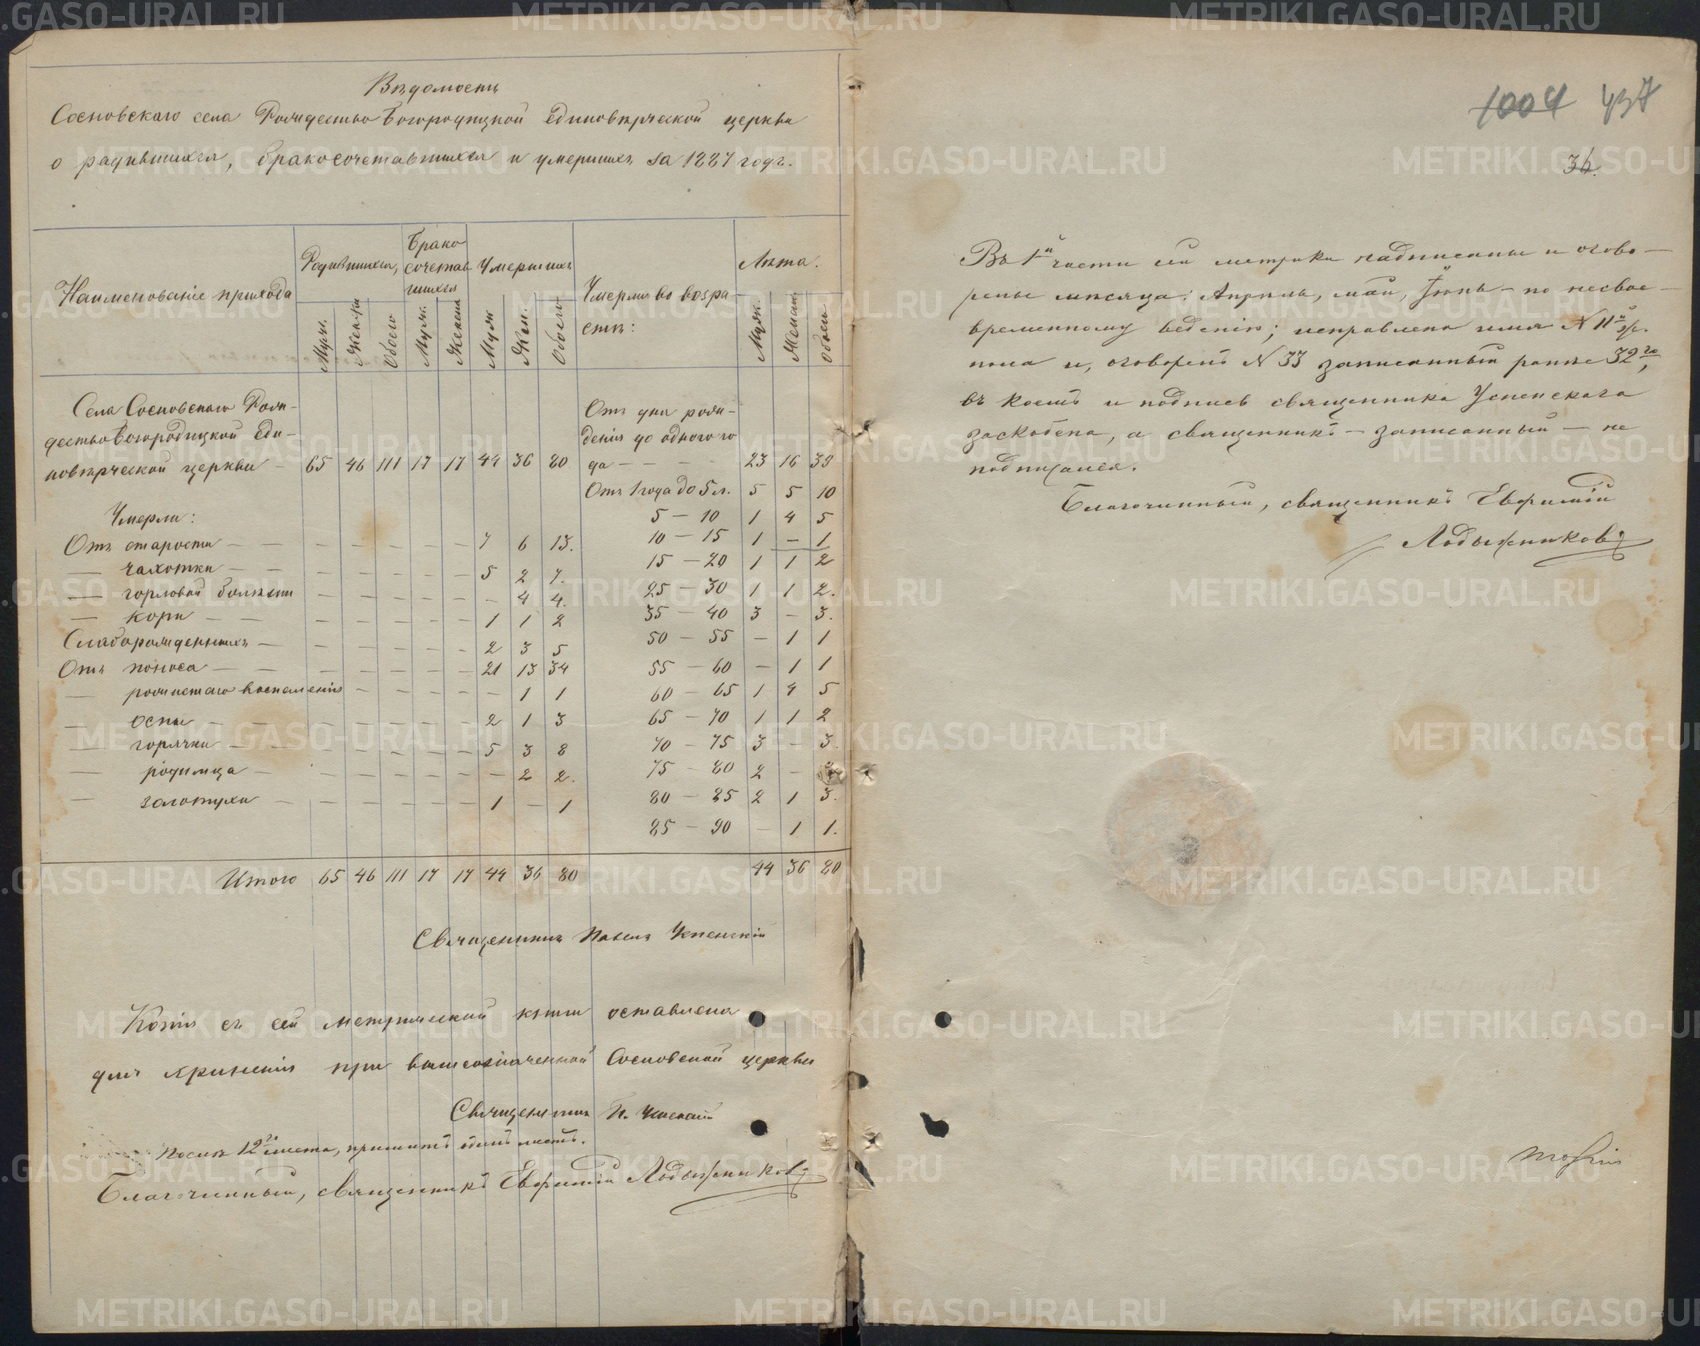 Вѣдомость
Сосновскаго села Рождество Богородицкой Единовѣрческой церкви
о родившихся, бракосочетавшихся и умершихъ за 1887 годъ.
Наименованіе прихода
Родившихся,
Брако
сочетав
шихся
Умершихъ
Умерли во возра
стѣ:
Лѣта.
Муж. Женск Обоего Муж. Женск Муж Жен. Обоего Муж. Женск. Обоего
Села Сосновскаго Рож-
дество Богородицкой Еди-
новѣрческой церкви — 65 46 111 17 17 44 36 80
Отъ дня рож-
денія до одного го
да — — — 23 16 39
Отъ 1 года до 5 л. 5 5 10
Умерли:
5 — 10 1 4 5
Отъ старости — — — — — — — 7 6 13.
10 — 15 1 — 1
— чахотки — — — — — — — 5 2 7.
15 — 20 1 1 2
— горловой болѣзни — — — — — — 4 4.
25 — 30 1 1 2.
— кори — — — — — — — 1 1 2
35 — 40 3 — 3.
Слаборожденныхъ — — — — — — 2 3 5
50 — 55 — 1 1
Отъ поноса — — — — — — — 21 13 34
55 — 60 — 1 1
— рожистаго воспаленія — — — — — 1 1
60 — 65 1 4 5
— оспы — — — — — — — 2 1 3
65 — 70 1 1 2
— горячки — — — — — — — 5 3 8
70 — 75 3 — 3.
— родимца — — — — — — — 2 2.
75 — 80 2 — 2
— золотухи — — — — — — 1 — 1
80 — 85 2 1 3.
85 — 90 — 1 1.
Итого 65 46 111 17 17 44 36 80 44 36 80
Священникъ Павелъ Успенскій
Копія съ сей метрической книги оставлена
для храненія при вышеозначенной Сосновской церкви
Священникъ П. Успенскій
Послѣ 12го листа, пришитъ одинъ листъ.
Благочинный, священникъ Евфимій Лодыжниковъ
1004 437
36.
Въ 1й части сей метрики надписаны и огово-
рены мѣсяца: Апрѣль, май, Іюнь — по несвое-
временному веденію; исправлена имя N 11й
пола и, оговоренъ N 33 записанный ранѣе 32го,
въ коемъ и подпись священника Успенскаго
заскоблена, а священникъ — записанный — не
подписался.
Благочинный, священникъ Евфимій
Лодыжниковъ
METRIKI.GASO-URAL.RU